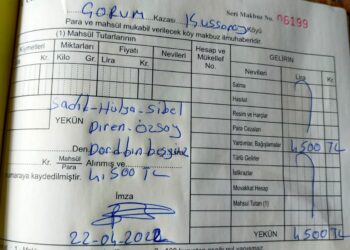 ÇORUM Kazası Kussaray Köyü
Seri Makbuz No. 06199
Para ve mahsül mukabil verilecek köy makbuz ilmuhaberidir.
(1) Mahsül Tutarlarının
Kıymetleri Miktarları Fiyatı Nevileri
Kr. Kilo Gr. Lira Kr.
Hesap ve Mükellef No.
GELİRİN
Nevileri Lira Kr.
Salma
Hasılat
Resim ve Harçlar
Para Cezaları
Yardımlar, Bağışlamalar 4,500 TL
Türlü Gelirler
İstikrazlar
Muvakkat Hesap
Mahsul Tutarı (1)
YEKÜN 4500 TL
Sadık-Hülya-Sibel
YEKÜN Diren-Özsoy
Den Dördbinbeşyüz
Kr. Mahsül Para Alınmış ve 4,500 TL
numaraya kaydedilmiştir.
İmza
22-04-2022